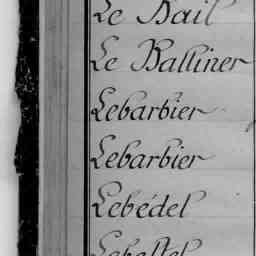 Le Bail
Le Balliner
Lebarbier
Lebarbier
Lebédel